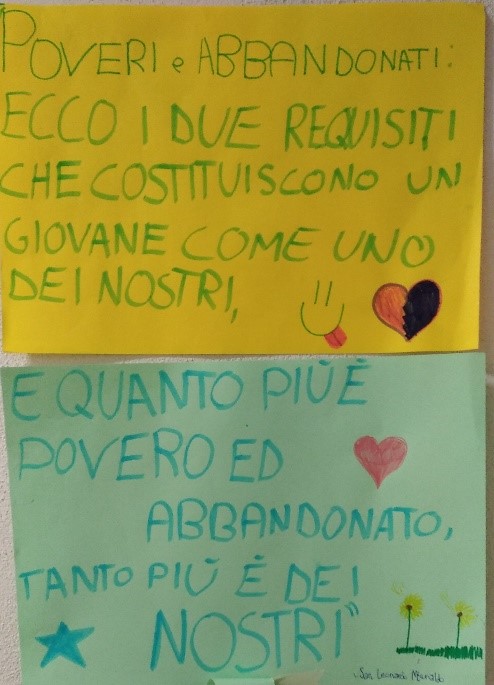 POVERI e ABBANDONATI:
ECCO I DUE REQUISITI
CHE COSTITUISCONO UN
GIOVANE COME UNO
DEI NOSTRI,
E QUANTO PIÙ È
POVERO ED
ABBANDONATO,
TANTO PIÙ È DEI
NOSTRI"
San Leonardo Murialdo